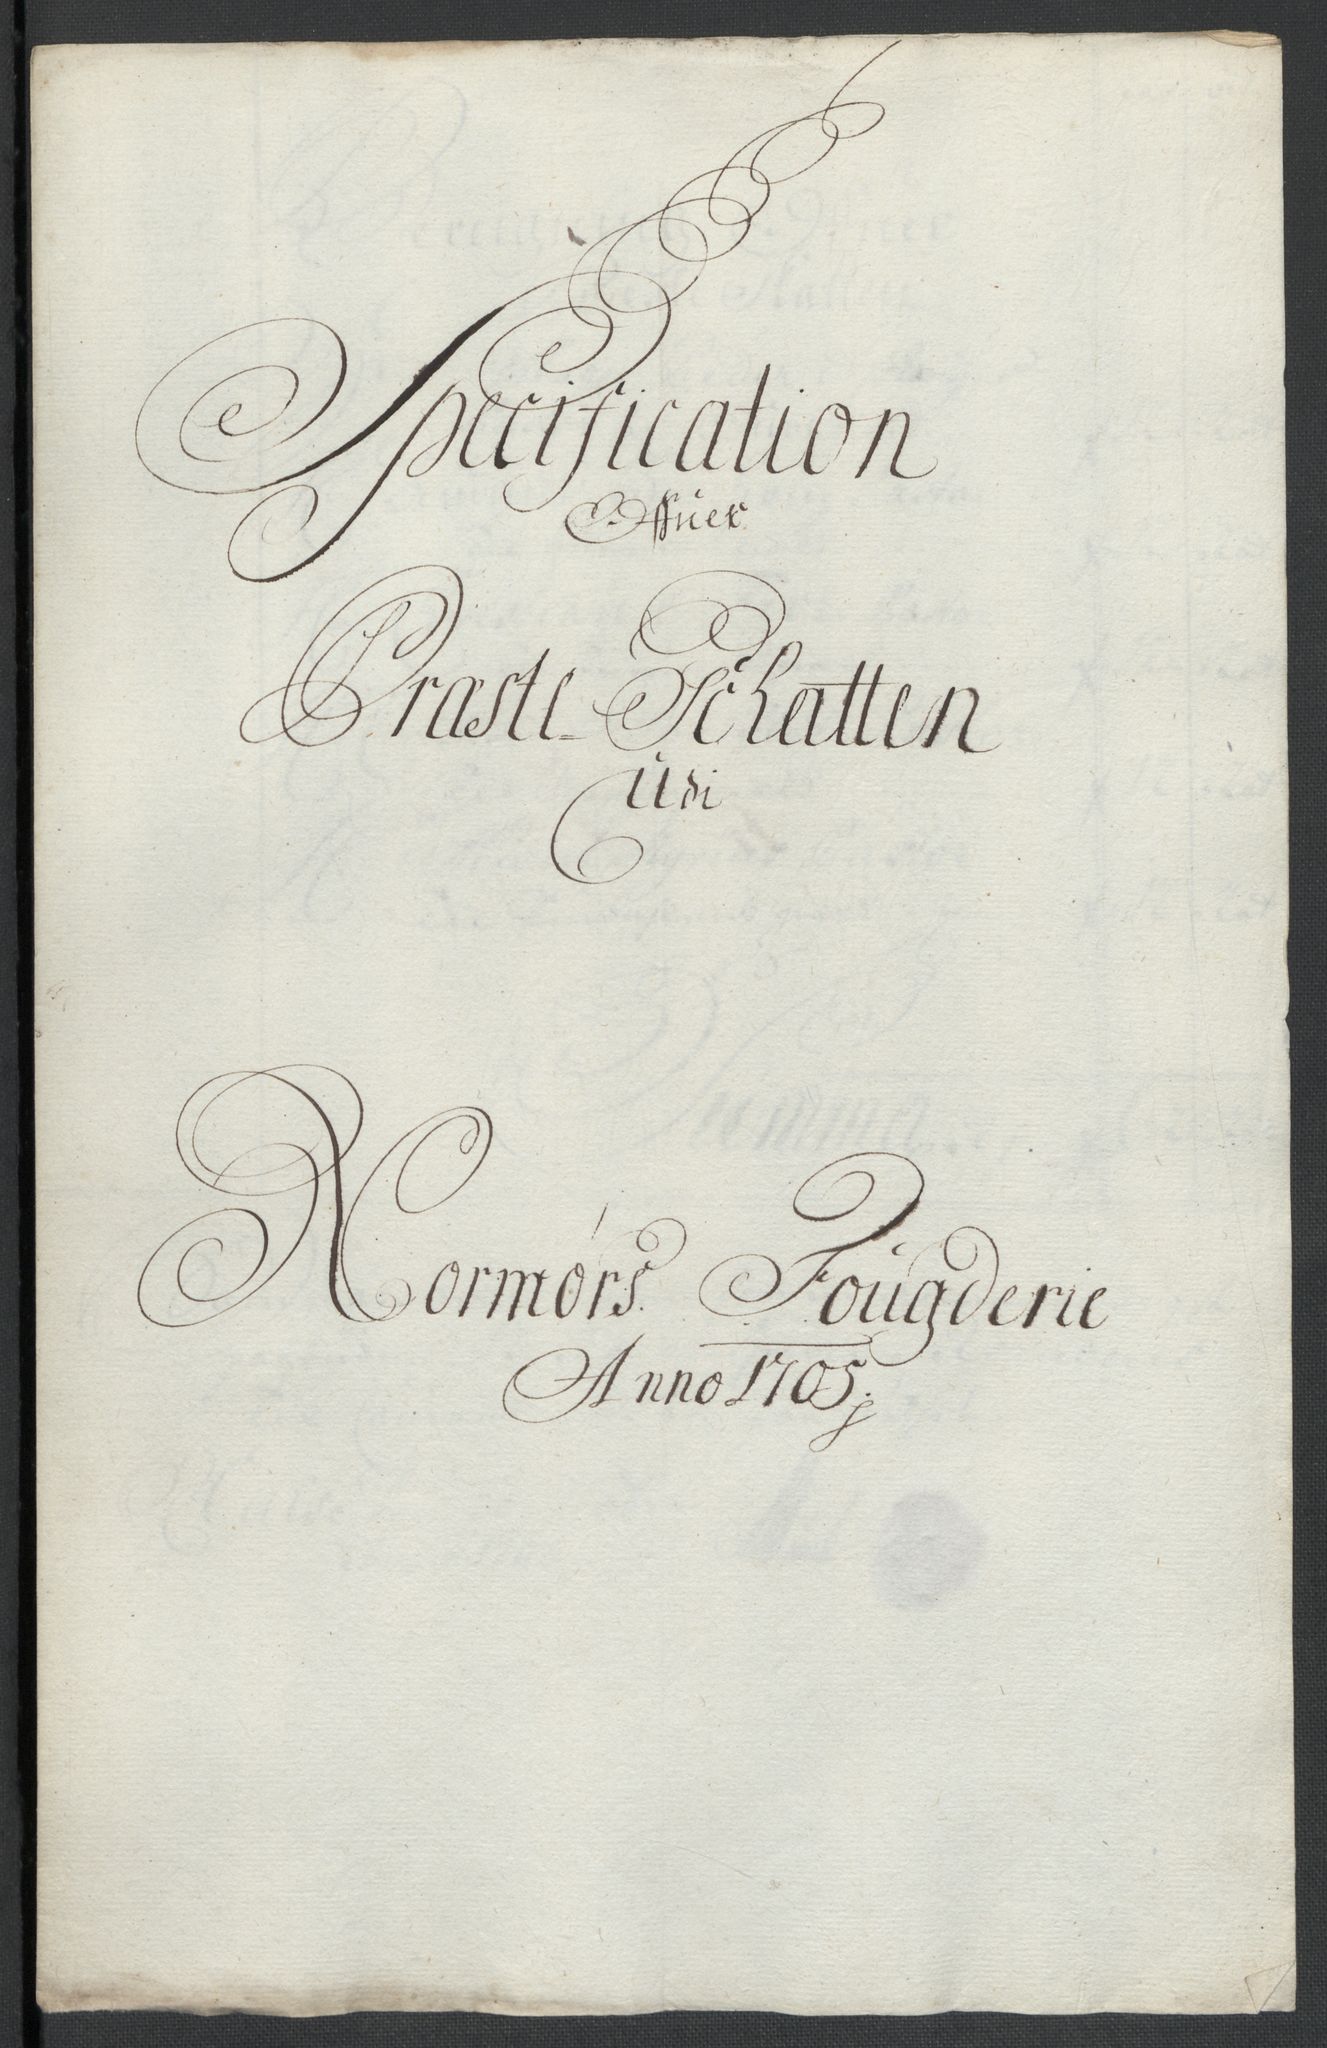 Specification
Offuer
Præste-Schatten
Udi
Normørs Fougderie
Anno 1705